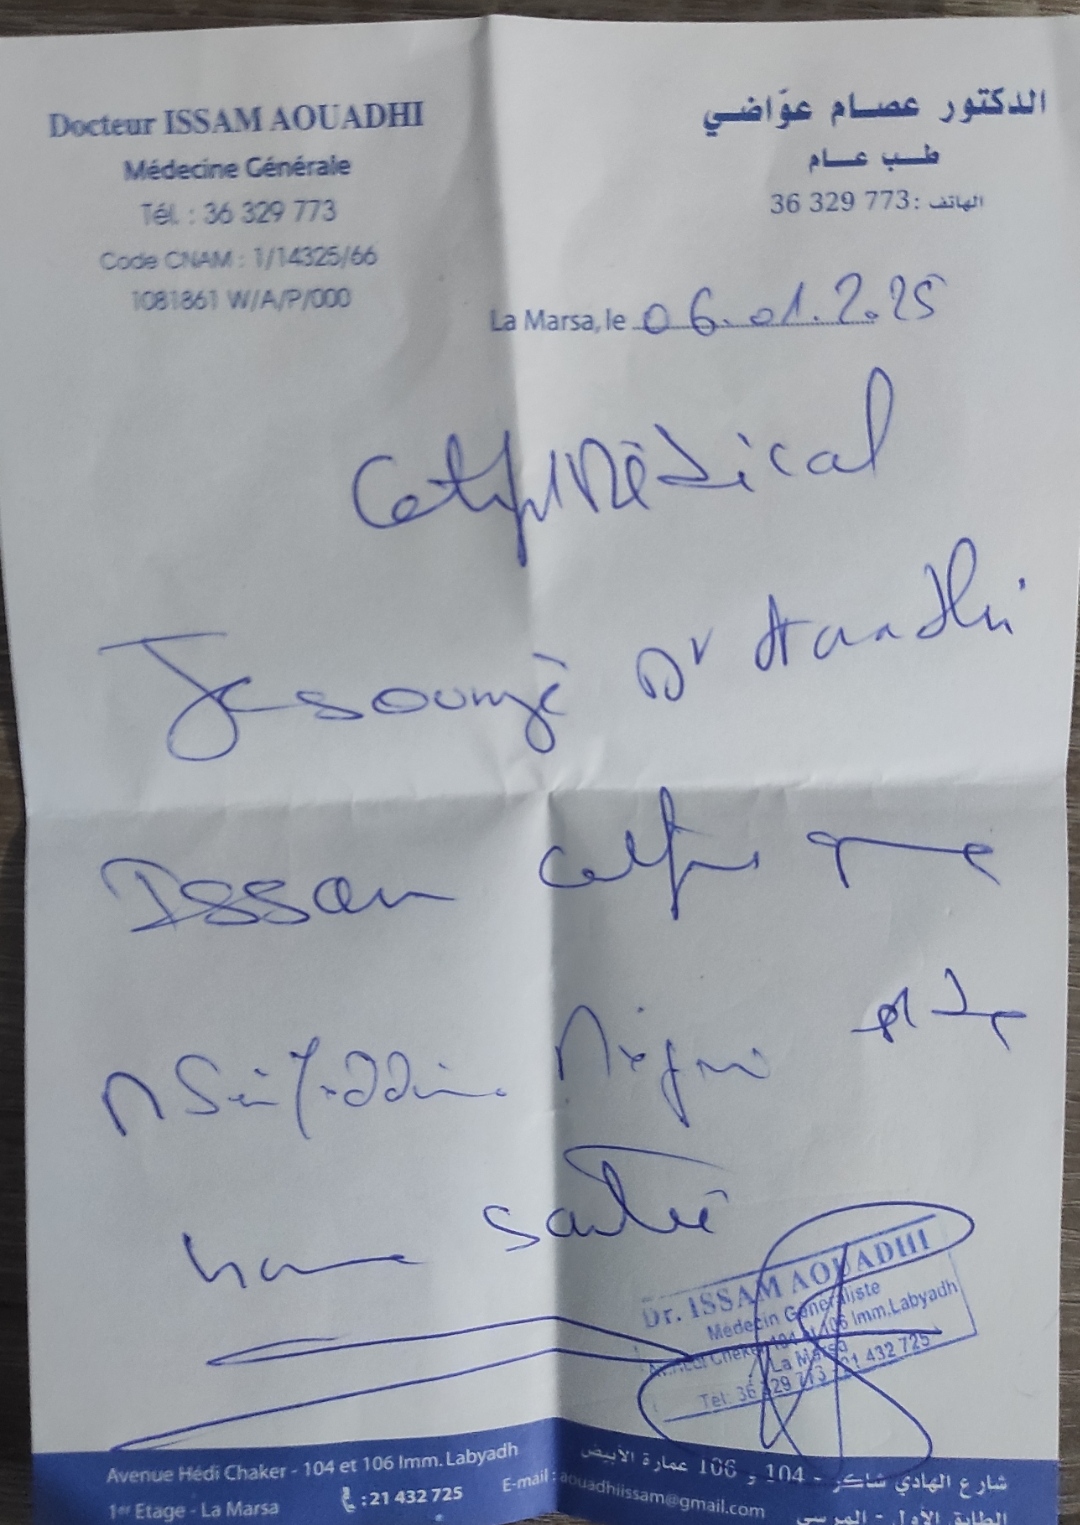 Docteur ISSAM AOUADHI
Médecine Générale
Tél. : 36 329 773
Code CNAM : 1/14325/66
1081861 W/A/P/000
الدكتور عصام عوّاضي
طب عام
الهاتف : 36 329 773
La Marsa, le 06.01.2025
Médical
Je sousigné Dr Aouadhi
Issam que
Seifeddine
santé
Dr. ISSAM AOUADHI
Médecin Généraliste
Av. Hédi Chaker 104 et 106 Imm. Labyadh
La Marsa
Tel: 36 329 773 - 21 432 725
Avenue Hédi Chaker - 104 et 106 Imm. Labyadh
1er Etage - La Marsa
: 21 432 725
E-mail : aouadhiissam@gmail.com
شارع الهادي شاكر - 104 و 106 عمارة الأبيض
الطابق الأول - المرسى